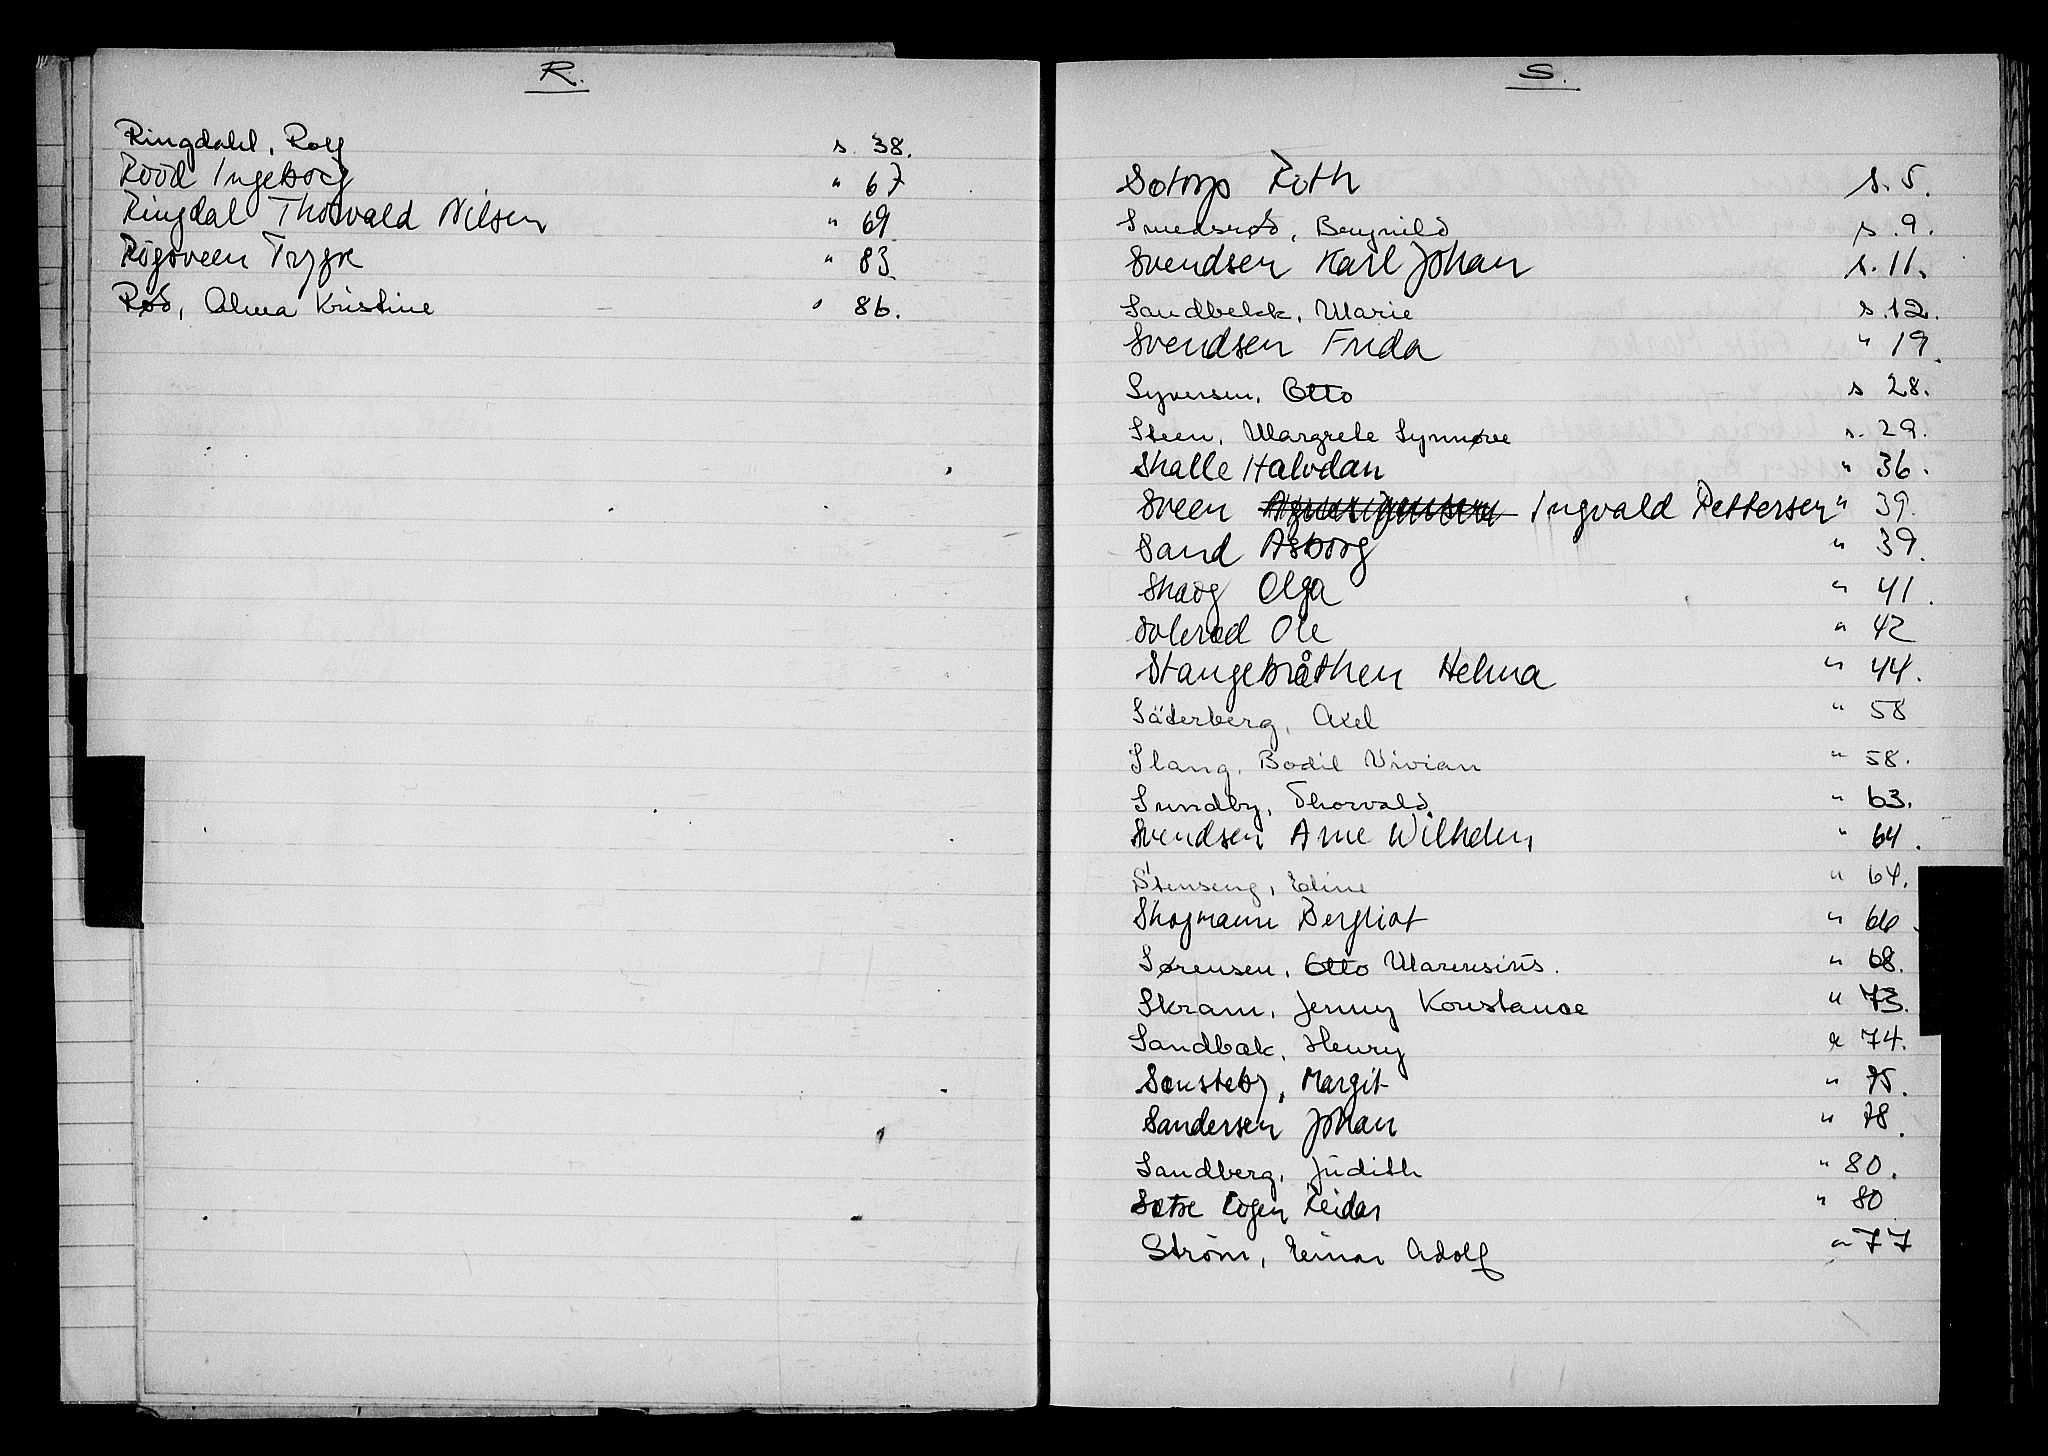 R.
Ringdahl, Rolf s. 38.
Rood Ingeborg " 67
Ringdal Thorvald Nilsen " 69
Rogsveen Trygve " 83
Rød, Alma Kristine " 86.
S.
Sotorp Ruth s. 5.
Smedsrød, Brynild s. 9.
Svendsen Karl Johan s. 11.
Sandbekk, Marie s. 12.
Svendsen Frida " 19.
Syversen, Otto s 28.
Steen, Margrete Synnøve s. 29.
Skalle Halvdan " 36.
Sveen Ingvald Pettersen " 39.
Sand Asborg " 39.
Skaog Olga " 41.
Solerød Ole " 42
Stangebråthen Helma " 44.
Söderberg, Axel " 58
Slang, Bodil Vivian " 58.
Sundby, Thorvald " 63.
Svendsen Arne Wilhelm " 64.
Stenseng, Eline " 64.
Skogmann Bergliot " 66.
Sørensen, Otto Marensius. " 68.
Skram, Jenny Konstance " 73.
Sandbæk, Henry " 74.
Sønsteby, Margit " 75.
Sandersen Johan " 78.
Sandberg, Judith " 80.
Sætre Eogen Reidar " 80
Strøm, Einar Adolf " 77